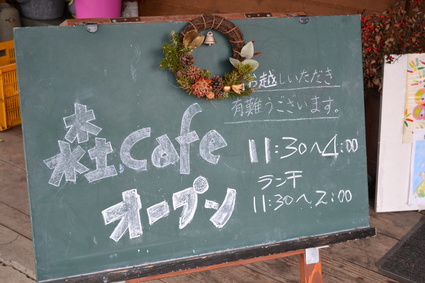 お越しいただき
有難うございます。
森cafe
オープン
11:30〜4:00
ランチ
11:30〜2:00